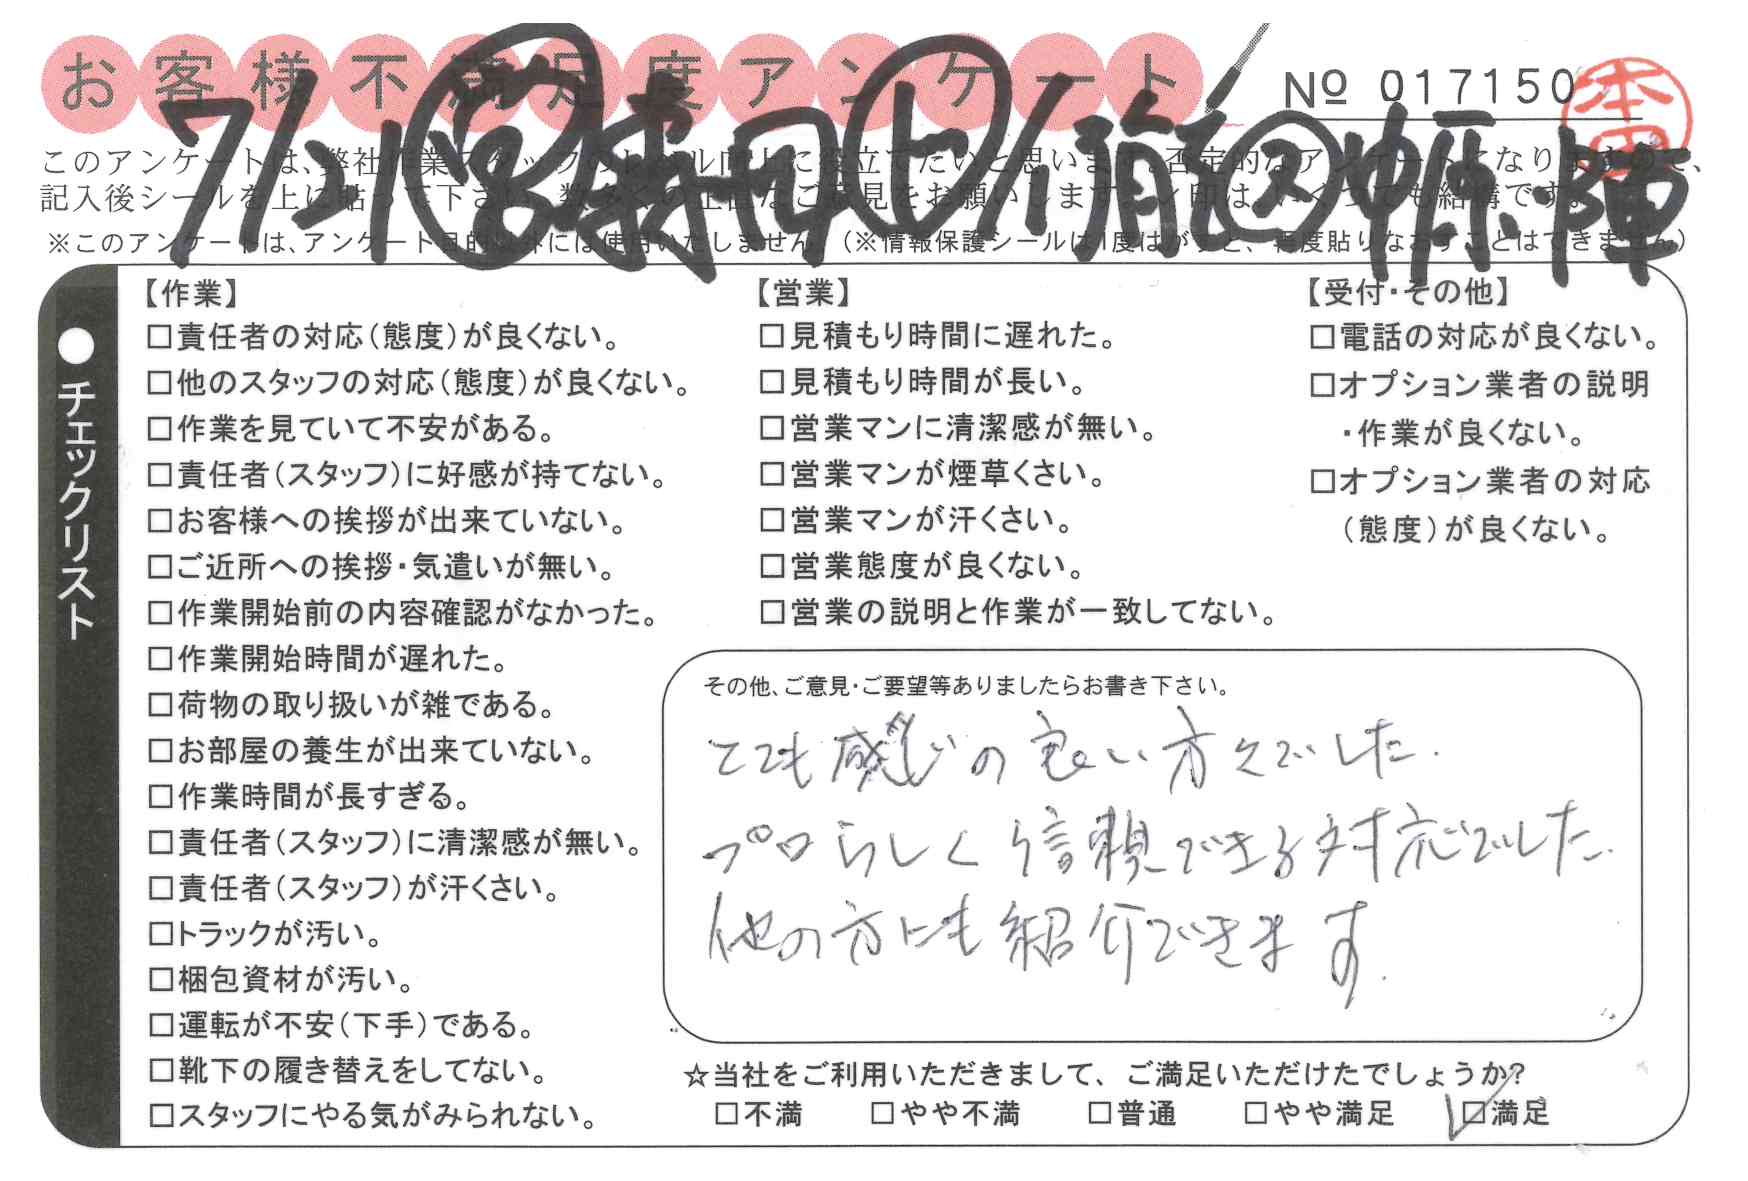 お客様不満足度アンケート
Nº 017150
本田
7/21
このアンケートは、弊社作業スタッフのレベル向上に役立てたいと思います。否定的なアンケートになりますので、
記入後シールを上に貼って下さい。数多くの正直なご意見をお願いします。レ印は、いくつでも結構です。
※このアンケートは、アンケート目的以外には使用いたしません。(※情報保護シールは1度はがすと、再度貼りなおすことはできません)
●チェックリスト
【作業】
□責任者の対応(態度)が良くない。
□他のスタッフの対応(態度)が良くない。
□作業を見ていて不安がある。
□責任者(スタッフ)に好感が持てない。
□お客様への挨拶が出来ていない。
□ご近所への挨拶・気遣いが無い。
□作業開始前の内容確認がなかった。
□作業開始時間が遅れた。
□荷物の取り扱いが雑である。
□お部屋の養生が出来ていない。
□作業時間が長すぎる。
□責任者(スタッフ)に清潔感が無い。
□責任者(スタッフ)が汗くさい。
□トラックが汚い。
□梱包資材が汚い。
□運転が不安(下手)である。
□靴下の履き替えをしてない。
□スタッフにやる気がみられない。
【営業】
□見積もり時間に遅れた。
□見積もり時間が長い。
□営業マンに清潔感が無い。
□営業マンが煙草くさい。
□営業マンが汗くさい。
□営業態度が良くない。
□営業の説明と作業が一致してない。
【受付・その他】
□電話の対応が良くない。
□オプション業者の説明
・作業が良くない。
□オプション業者の対応
(態度)が良くない。
その他、ご意見・ご要望等ありましたらお書き下さい。
とても感じの良い方々でした.
プロらしく信頼できる対応でした.
他の方にも紹介できます.
☆当社をご利用いただきまして、ご満足いただけたでしょうか?
□不満 □やや不満 □普通 □やや満足 ☑満足